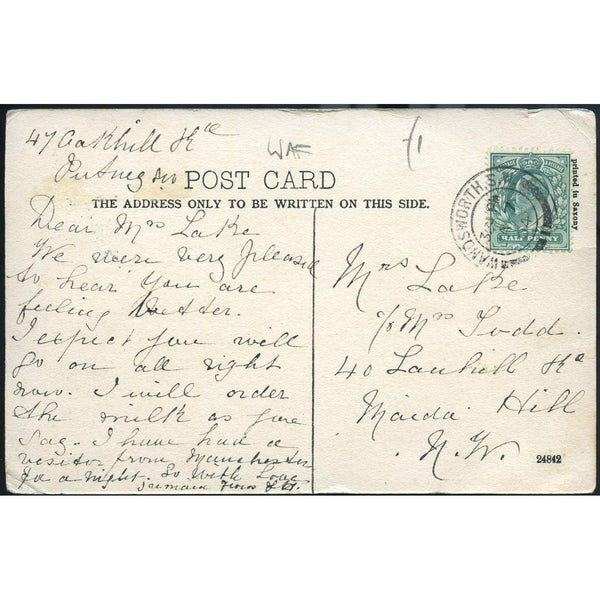 47 Oakhill Rd
Putney SW
WAF
/1
POST CARD
THE ADDRESS ONLY TO BE WRITTEN ON THIS SIDE.
Dear Mrs Lake
We were very pleased
to hear you are
feeling better.
I expect you will
go on all right
now. I will order
the milk as you
say. I have had a
visitor from Manchester
for a night. So with Love
remain yours
Mrs Lake
c/o Mrs Todd.
40 Lauhill Rd
Maida Hill
N.W.
24842
WANDSWORTH. S.W.
HALF PENNY
printed in Saxony